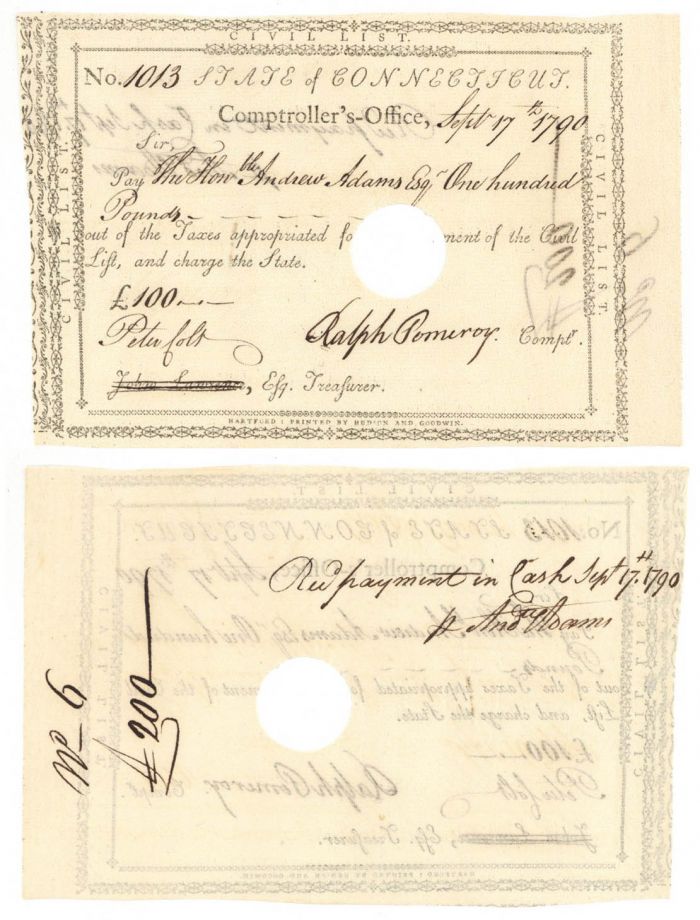 CIVIL LIST.
No. 1013 STATE of CONNECTICUT.
Comptroller's-Office, Sept 17th 1790
Sir,
Pay The Honble Andrew Adams Esqr One hundred
Pounds
out of the Taxes appropriated fo ment of the Civil
List, and charge the State.
£ 100
Peter Colt
Ralph Pomeroy. Comptr.
John Lawrence, Esq. Treasurer.
HARTFORD: PRINTED BY HUDSON AND GOODWIN.
CIVIL LIST.
CIVIL LIST.
Recd payment in Cash Sept 17th. 1790
p Andw Adams
No 6
200